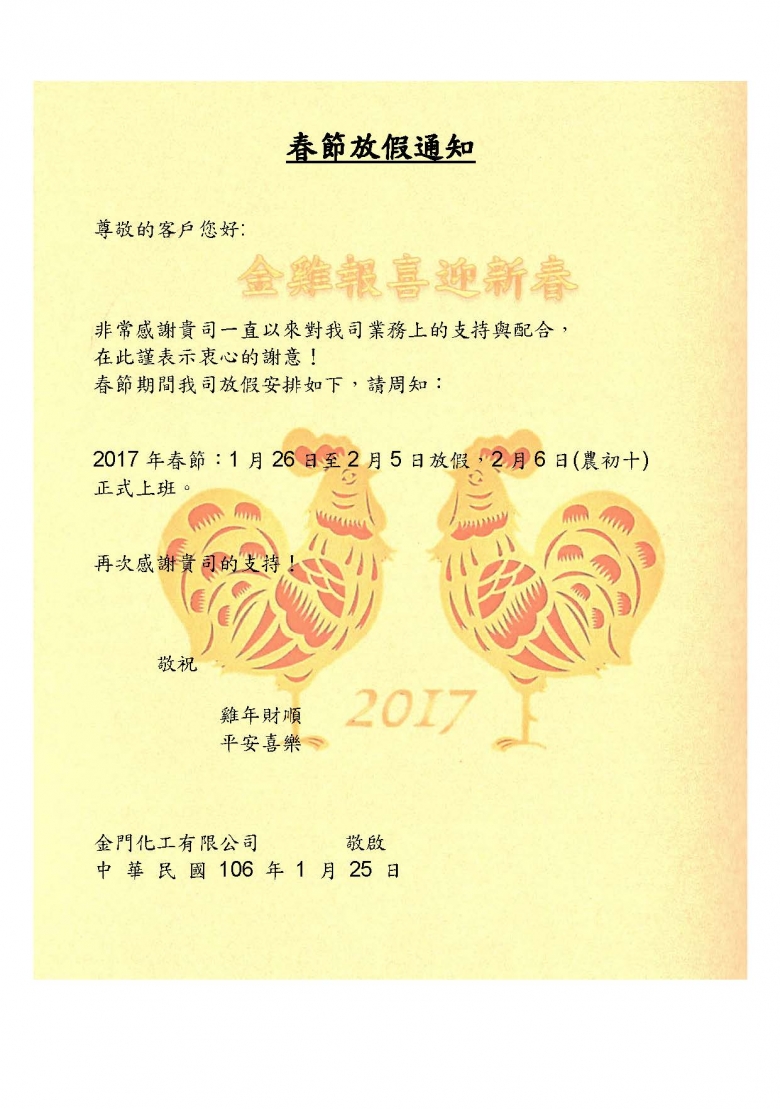 春節放假通知
尊敬的客戶您好:
金雞報喜迎新春
非常感謝貴司一直以來對我司業務上的支持與配合，
在此謹表示衷心的謝意！
春節期間我司放假安排如下，請周知：
2017 年春節：1 月 26 日至 2 月 5 日放假，2 月 6 日(農初十)
正式上班。
再次感謝貴司的支持！
敬祝
雞年財順
2017
平安喜樂
金門化工有限公司 敬啟
中 華 民 國 106 年 1 月 25 日